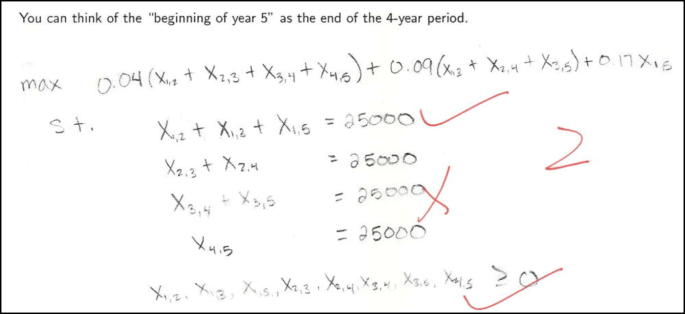 You can think of the "beginning of year 5" as the end of the 4-year period.
max 0.04(X₁,₂ + X₂,₃ + X₃,₄ + X₄,₅) + 0.09(X₁,₃ + X₂,₄ + X₃,₅) + 0.17 X₁,₅
st. X₁,₂ + X₁,₃ + X₁,₅ = 25000
X₂,₃ + X₂,₄ = 25000
2
X₃,₄ + X₃,₅ = 25000
X₄,₅ = 25000
X₁,₂, X₁,₃, X₁,₅, X₂,₃, X₂,₄, X₃,₄, X₃,₅, X₄,₅ ≥ 0